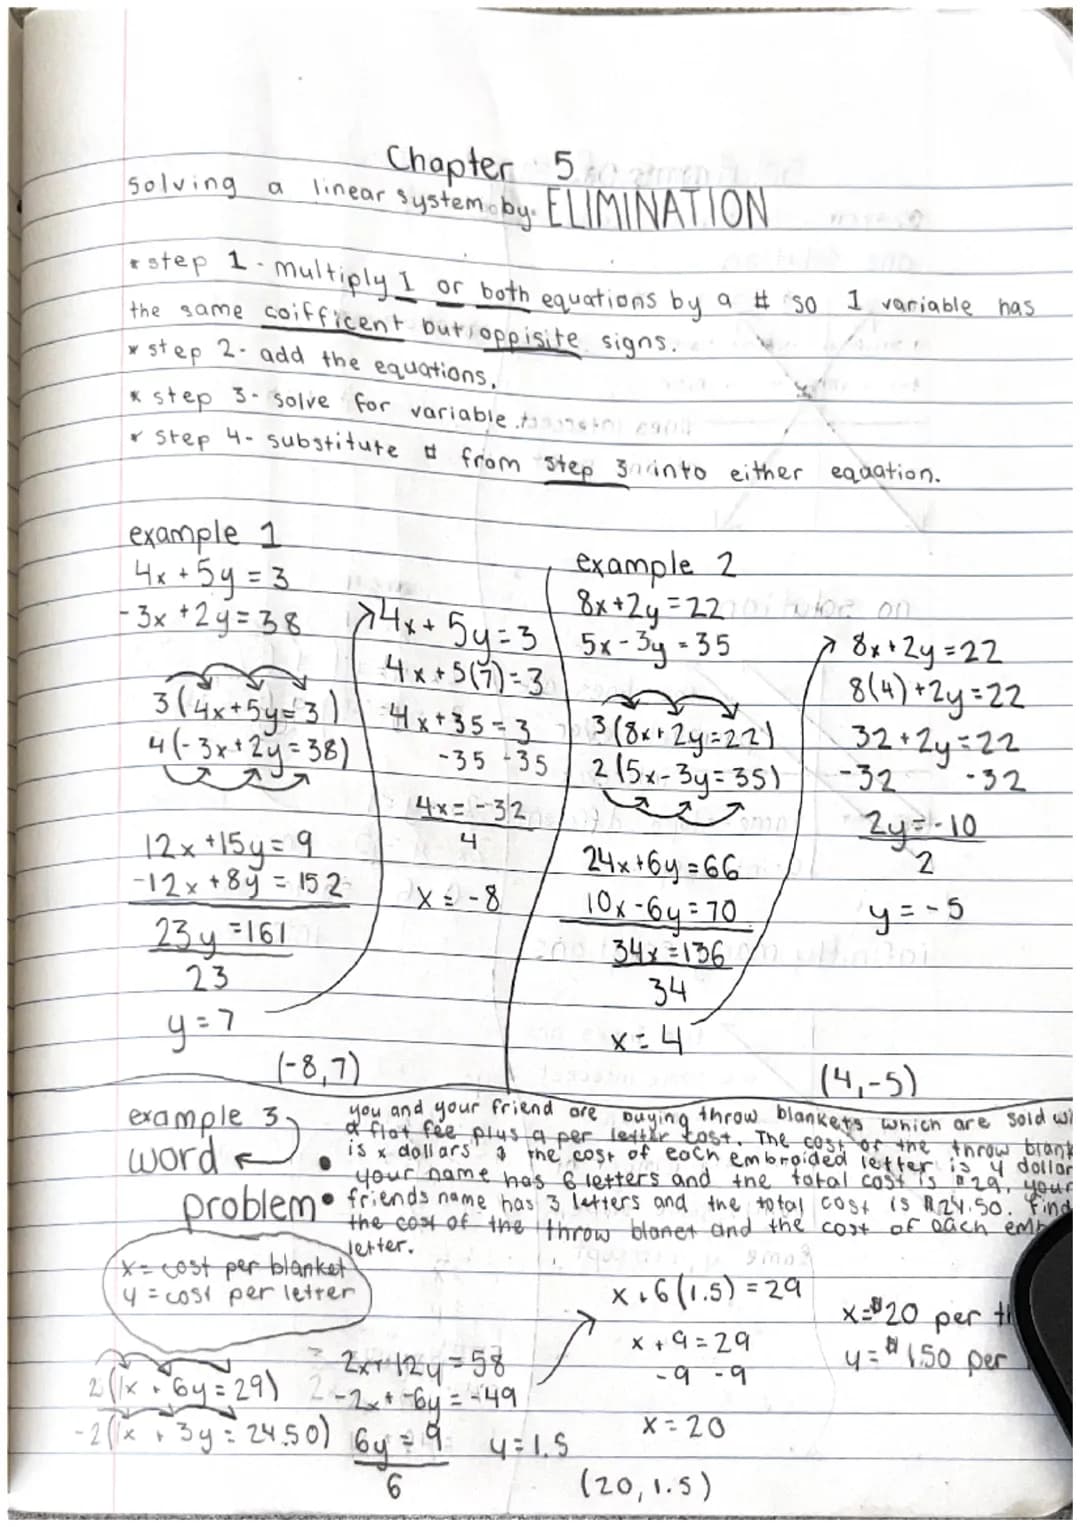 Chapter 5
Solving a linear system by ELIMINATION
* step 1 - multiply 1 or both equations by a # so 1 variable has
the same coifficent but oppisite signs.
* step 2 - add the equations.
* step 3 - solve for variable.
* step 4 - substitute # from step 3 into either equation.
example 1
4x + 5y = 3
-3x + 2y = 38
3(4x + 5y = 3)
4(-3x + 2y = 38)
12x + 15y = 9
-12x + 8y = 152
23y = 161
23
y = 7
4x + 5y = 3
4x + 5(7) = 3
4x + 35 = 3
-35 -35
4x = -32
4
x = -8
(-8,7)
example 2
8x + 2y = 22
5x - 3y = 35
3(8x + 2y = 22)
2(5x - 3y = 35)
24x + 6y = 66
10x - 6y = 70
34x = 136
34
x = 4
8x + 2y = 22
8(4) + 2y = 22
32 + 2y = 22
-32 -32
2y = -10
2
y = -5
(4,-5)
example 3
word
problem
you and your friend are buying throw blankets which are sold
a flat fee plus a per letter cost. The cost of the throw
is x dollars & the cost of each embroided letter is y dollar
• your name has 6 letters and the total cost is $29. your
• friends name has 3 letters and the total cost is $24.50. Find
the cost of the throw blanet and the cost of each
letter.
x = cost per blanket
y = cost per letter
2(1x + 6y = 29)
-2(1x + 3y = 24.50)
2x + 12y = 58
-2x + -6y = -49
6y = 9
6
y = 1.5
x + 6(1.5) = 29
x + 9 = 29
-9 -9
x = 20
(20, 1.5)
x = $20 per
y = $1.50 per